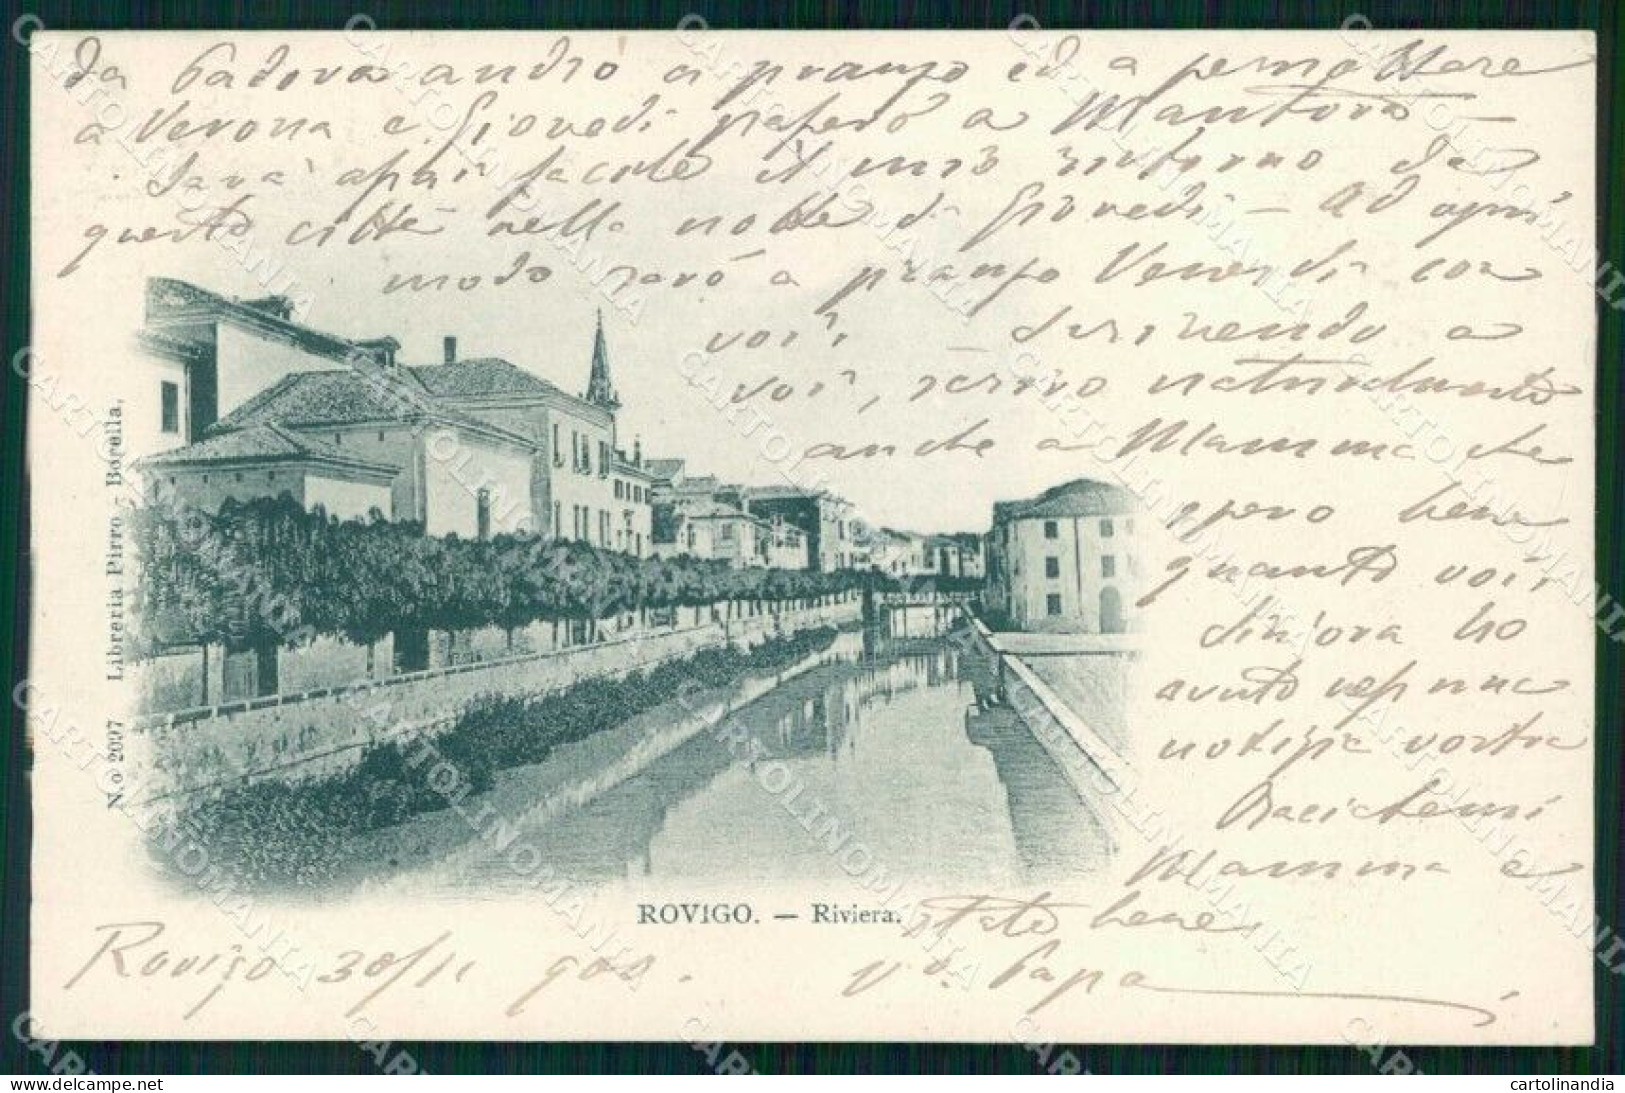 da Padova andrò a pranzo ed a pernottare
a Verona e Giovedì passerò a Mantova —
Sarà assai facile il mio ritorno da
questa città nella notte di Giovedì — Ad ogni
modo sarò a pranzo Venerdì con
voi — Scrivendo a
voi, scrivo naturalmente
anche a Mamma che
spero bene
quanto voi.
Sin'ora ho
avuto nessuna
notizia vostra
Baciatemi
Mamma e
state bene
Rovigo 30/11 900. Vo. Papa
ROVIGO. — Riviera.
N.o 2097 Libreria Pirro - Borella.
CARTOLINOMANIA
cartolinandia